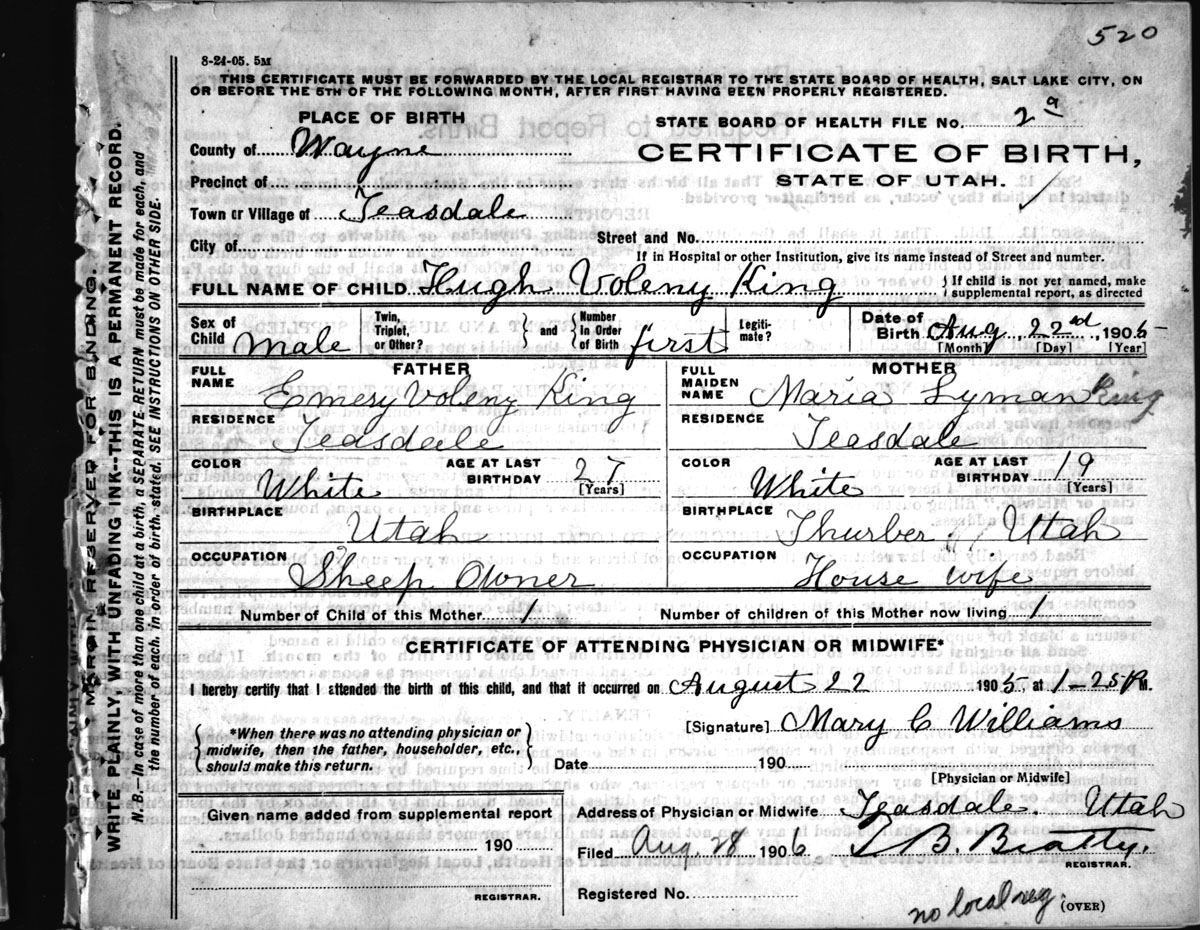 520
8-24-05. 5M
THIS CERTIFICATE MUST BE FORWARDED BY THE LOCAL REGISTRAR TO THE STATE BOARD OF HEALTH, SALT LAKE CITY, ON
OR BEFORE THE 5TH OF THE FOLLOWING MONTH, AFTER FIRST HAVING BEEN PROPERLY REGISTERED.
PLACE OF BIRTH
STATE BOARD OF HEALTH FILE No. 2 a
County of Wayne
CERTIFICATE OF BIRTH,
Precinct of
STATE OF UTAH.
Town or Village of Teasdale
City of
Street and No.
If in Hospital or other Institution, give its name instead of Street and number.
FULL NAME OF CHILD Hugh Voleny King } If child is not yet named, make
supplemental report, as directed
Sex of Child Male
Twin, Triplet, or Other? } and { Number in Order of Birth first
Legiti-mate?
Date of Birth Aug, 22nd, 1905
[Month] [Day] [Year]
FATHER
MOTHER
FULL NAME Emesy Voleny King
FULL MAIDEN NAME Maria Lyman King
RESIDENCE Teasdale
RESIDENCE Teasdale
COLOR White AGE AT LAST BIRTHDAY 27 [Years]
COLOR White AGE AT LAST BIRTHDAY 19 [Years]
BIRTHPLACE Utah
BIRTHPLACE Thurber Utah
OCCUPATION Sheep Owner
OCCUPATION House wife
Number of Child of this Mother 1 Number of children of this Mother now living 1
CERTIFICATE OF ATTENDING PHYSICIAN OR MIDWIFE*
I hereby certify that I attended the birth of this child, and that it occurred on August 22 1905, at 1-25 P M.
{ *When there was no attending physician or
midwife, then the father, householder, etc.,
should make this return. }
[Signature] Mary C Williams
Date 190
[Physician or Midwife]
Given name added from supplemental report
190
REGISTRAR.
Address of Physician or Midwife Teasdale. Utah
Filed Aug. 28 1906 B. Beatty.
REGISTRAR.
Registered No.
no local reg. (OVER)
MARGIN RESERVED FOR BINDING.
WRITE PLAINLY, WITH UNFADING INK--THIS IS A PERMANENT RECORD.
N. B.—In case of more than one child at a birth, a SEPARATE RETURN must be made for each, and
the number of each, in order of birth, stated. SEE INSTRUCTIONS ON OTHER SIDE.